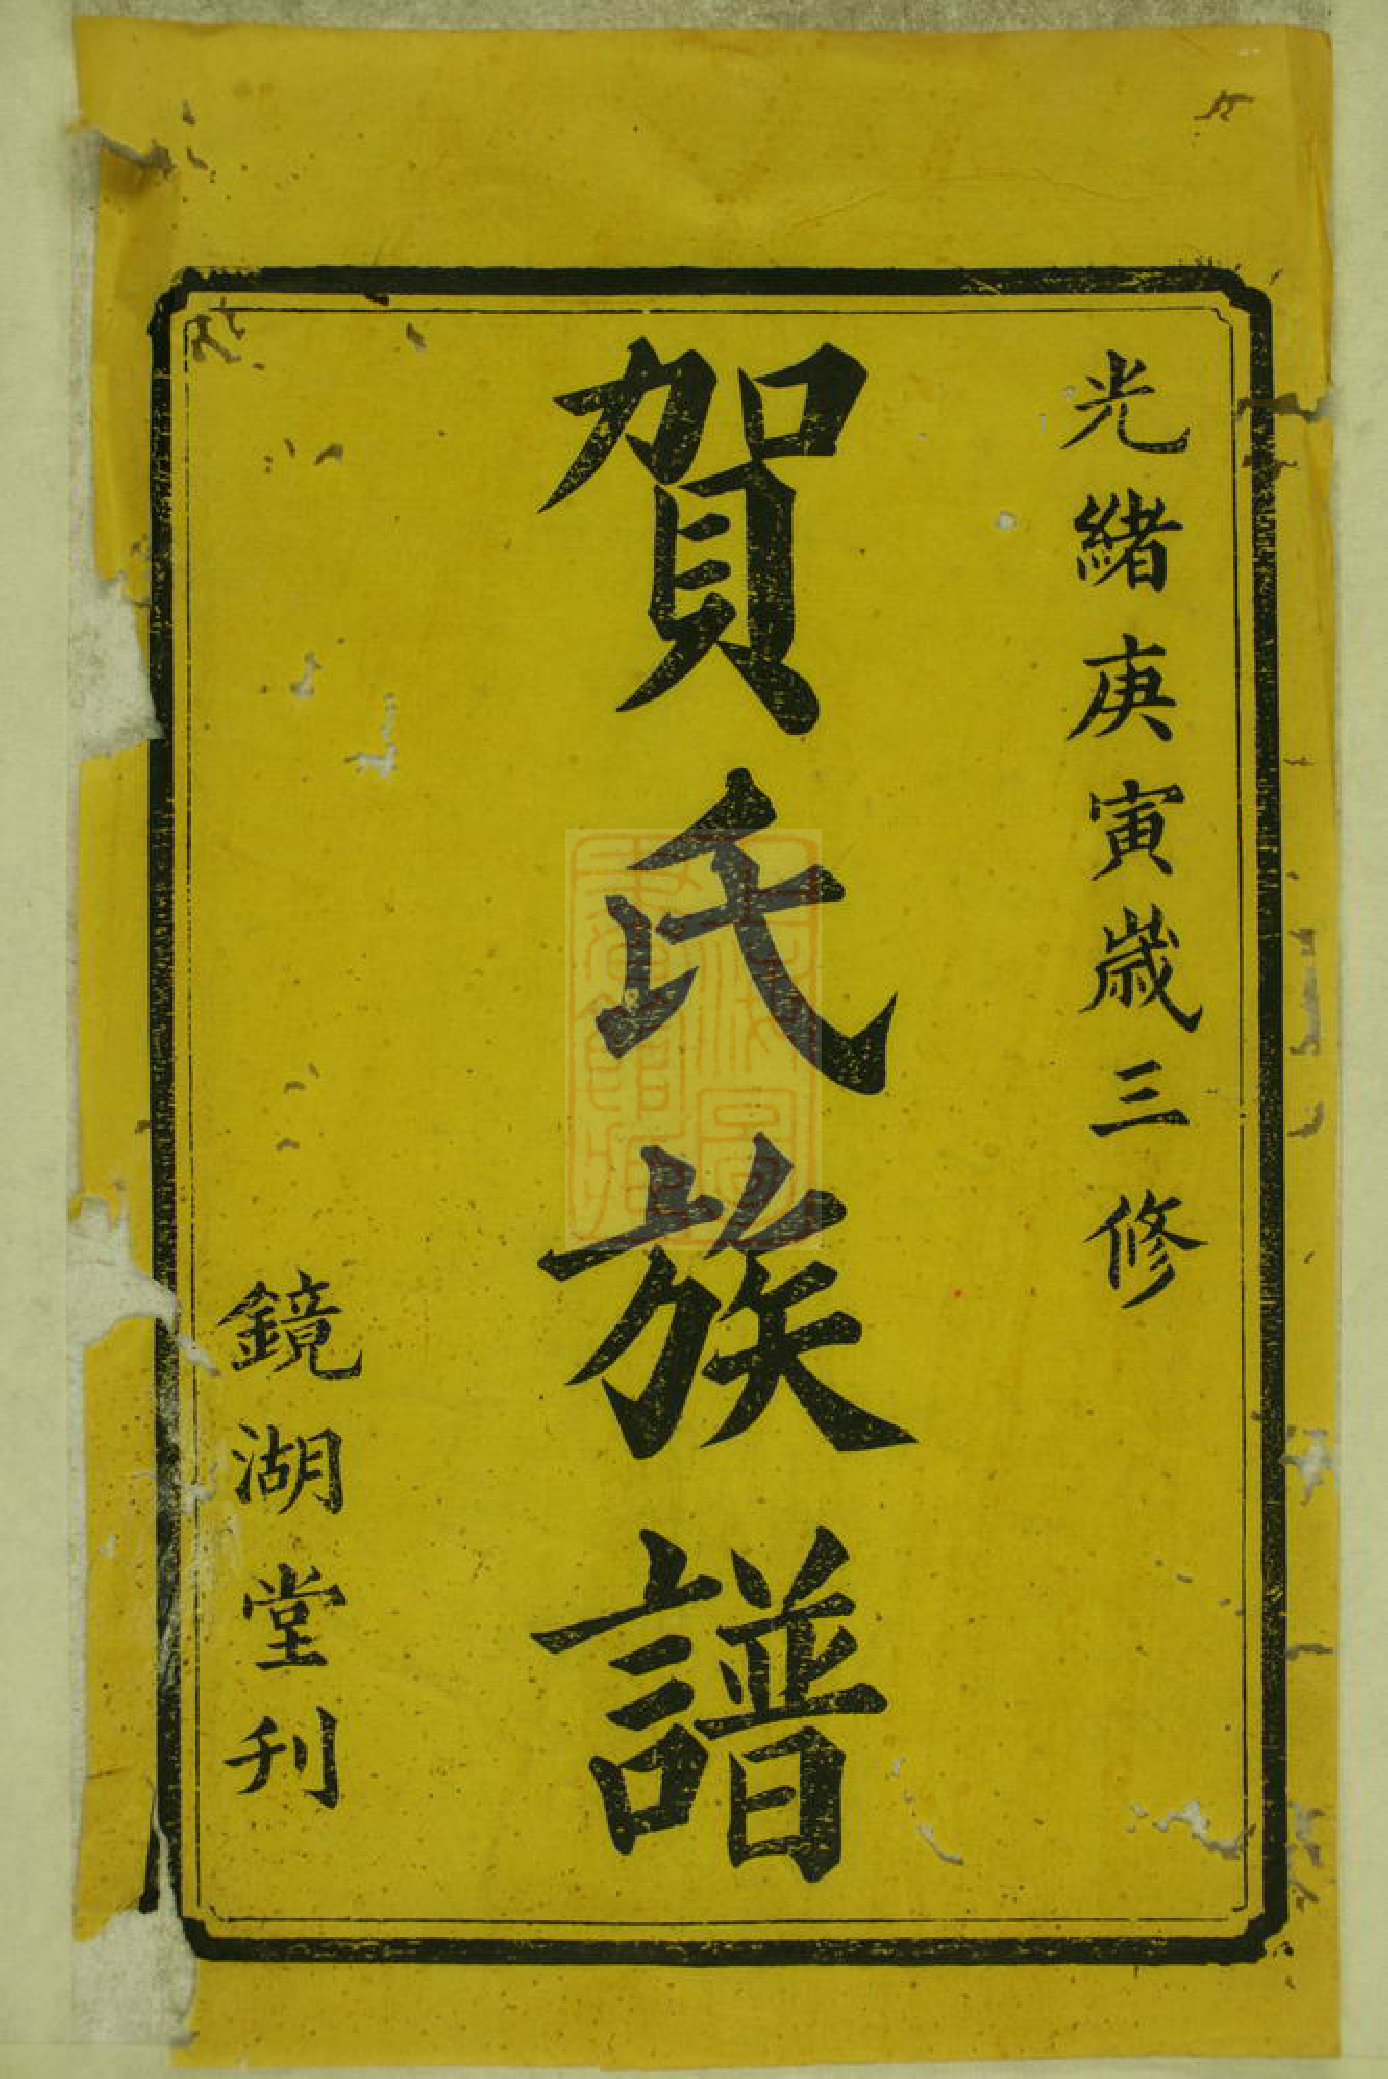 光緒庚寅歲三修
賀氏族譜
鏡湖堂刊